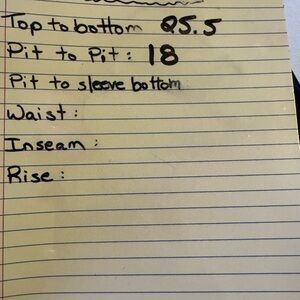 Top to bottom 25.5
Pit to Pit: 18
Pit to sleeve bottom
Waist:
Inseam:
Rise: